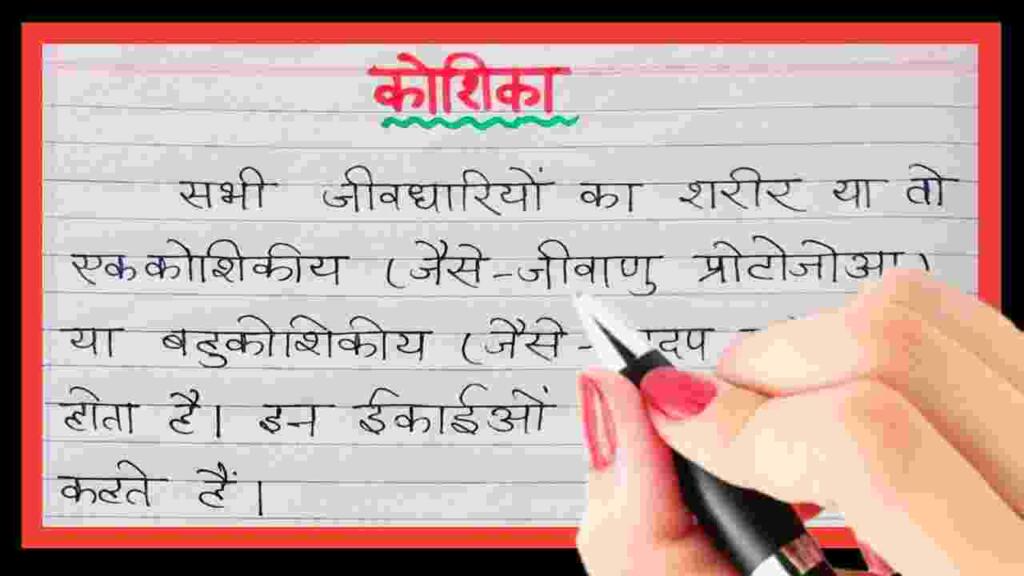 कोशिका
सभी जीवधारियों का शरीर या तो
एककोशिकीय (जैसे-जीवाणु प्रोटोजोआ)
या बहुकोशिकीय (जैसे-
होता है। इन ईकाईओं
कहते हैं।